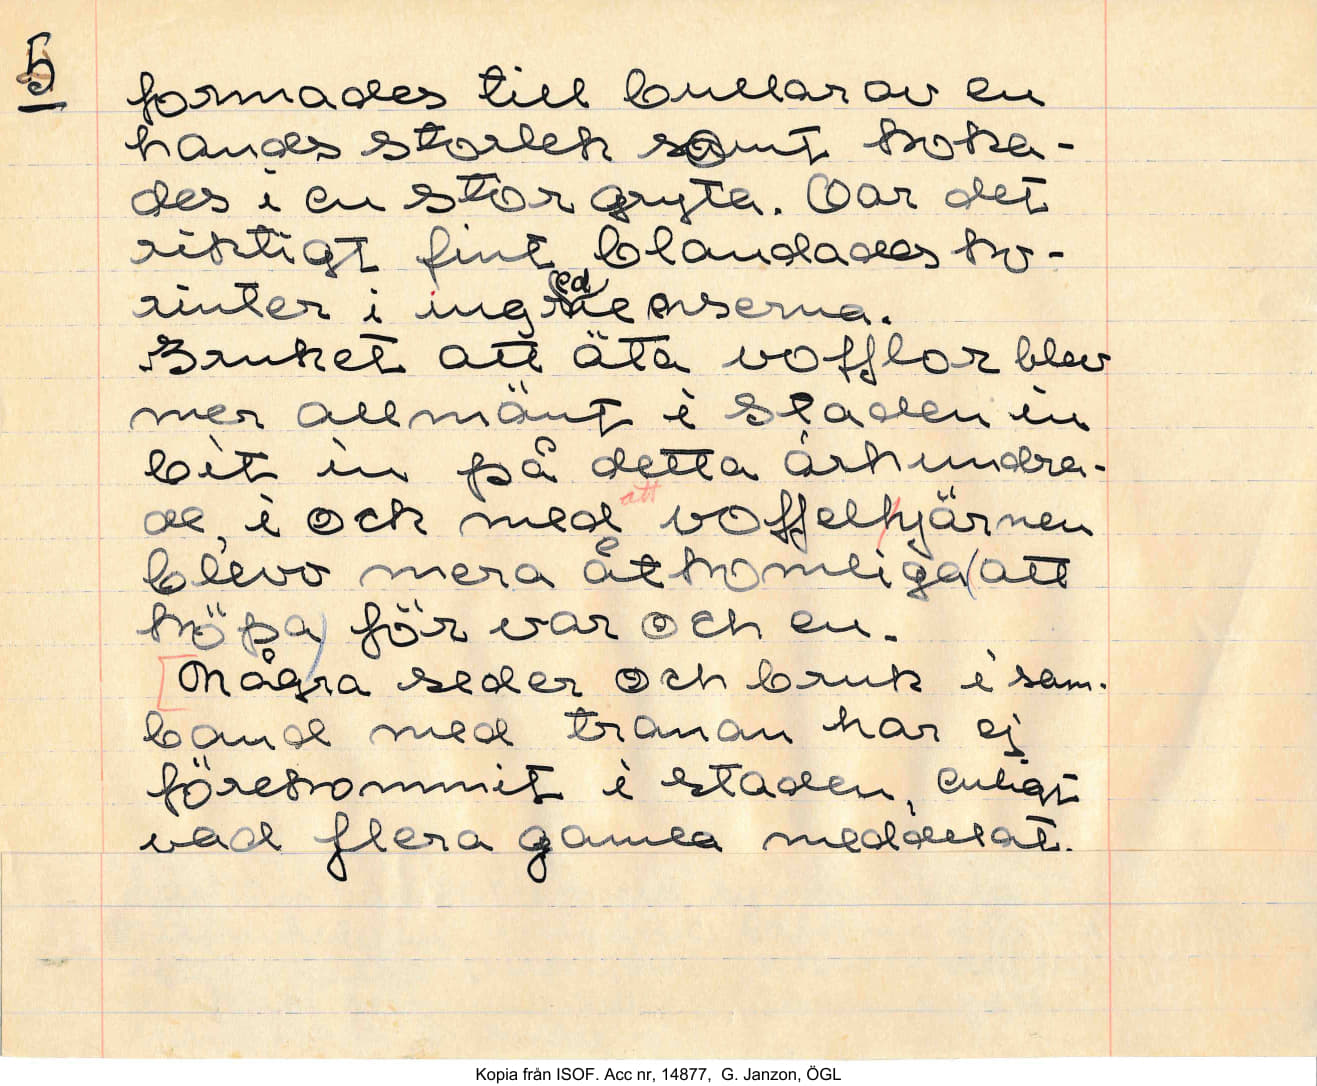 5
formades till bullar av en
hands storlek samt koka-
des i en stor gryta. Var det
riktigt fint blandades ko-
rinter i ingredienserna.
Bruket att äta vofflor blev
mer allmänt i staden in
bit in på detta århundra-
de, i och med att voffelkjärnen
blevo mera åtkomliga (att
köpa) för var och en.
[Några seder och bruk i sam-
band med tranan har ej
förekommit i staden, enligt
vad flera gamla meddelat.
Kopia från ISOF. Acc nr, 14877, G. Janzon, ÖGL